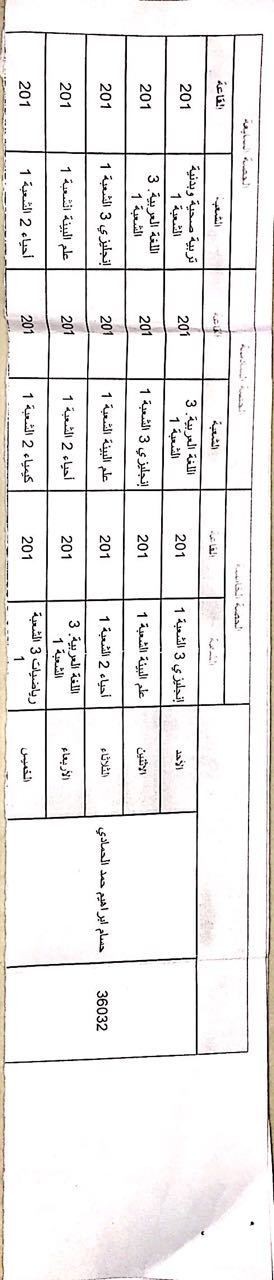 الحصة الخامسة
الحصة السادسة
الحصة السابعة
الشعبة
القاعة
الشعبة
القاعة
الشعبة
القاعة
36032
حسام ابراهيم حمد الحمادي
الأحد
إنجليزي 3 الشعبة 1
201
اللغة العربية. 3
الشعبة 1
201
تربية صحية وبدنية
الشعبة 1
201
الاثنين
علم البيئة الشعبة 1
201
إنجليزي 3 الشعبة 1
201
اللغة العربية. 3
الشعبة 1
201
الثلاثاء
أحياء 2 الشعبة 1
201
علم البيئة الشعبة 1
201
إنجليزي 3 الشعبة 1
201
الأربعاء
اللغة العربية. 3
الشعبة 1
201
أحياء 2 الشعبة 1
201
علم البيئة الشعبة 1
201
الخميس
رياضيات 3 الشعبة
1
201
كيمياء 2 الشعبة 1
201
أحياء 2 الشعبة 1
201